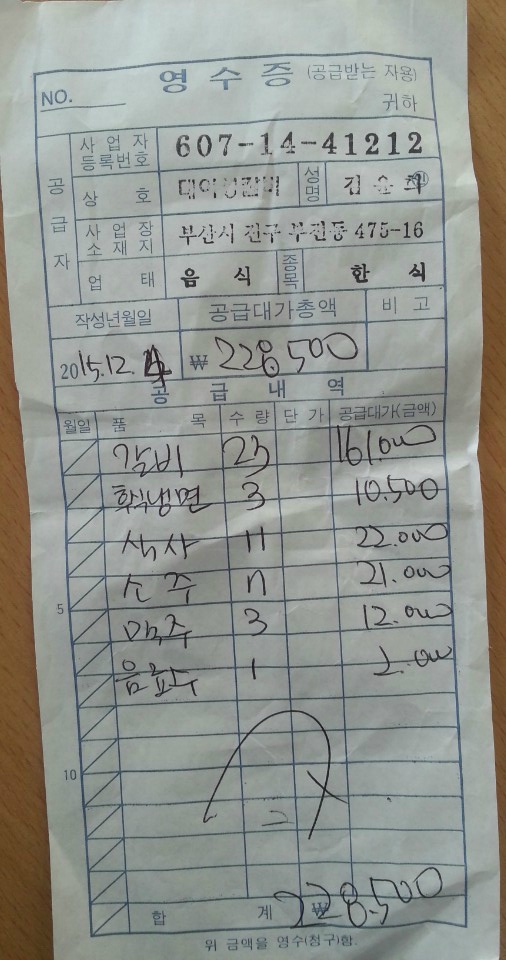 영 수 증 (공급받는 자용)
NO. 귀하
공급자
사업자등록번호 607-14-41212
상 호 성명 김 순 희 인
사업장소재지 부산시 진구 부전동 475-16
업 태 음 식 종목 한 식
작성년월일 공급대가총액 비 고
2015.12.4 ₩ 228,500
공 급 내 역
월일 품 목 수 량 단 가 공급대가(금액)
갈비 23 161.000
후식냉면 3 10.500
식사 11 22.000
5 소주 7 21.000
맥주 3 12.000
음료수 1 2.000
10
합 계 ₩ 228,500
위 금액을 영수(청구)함.